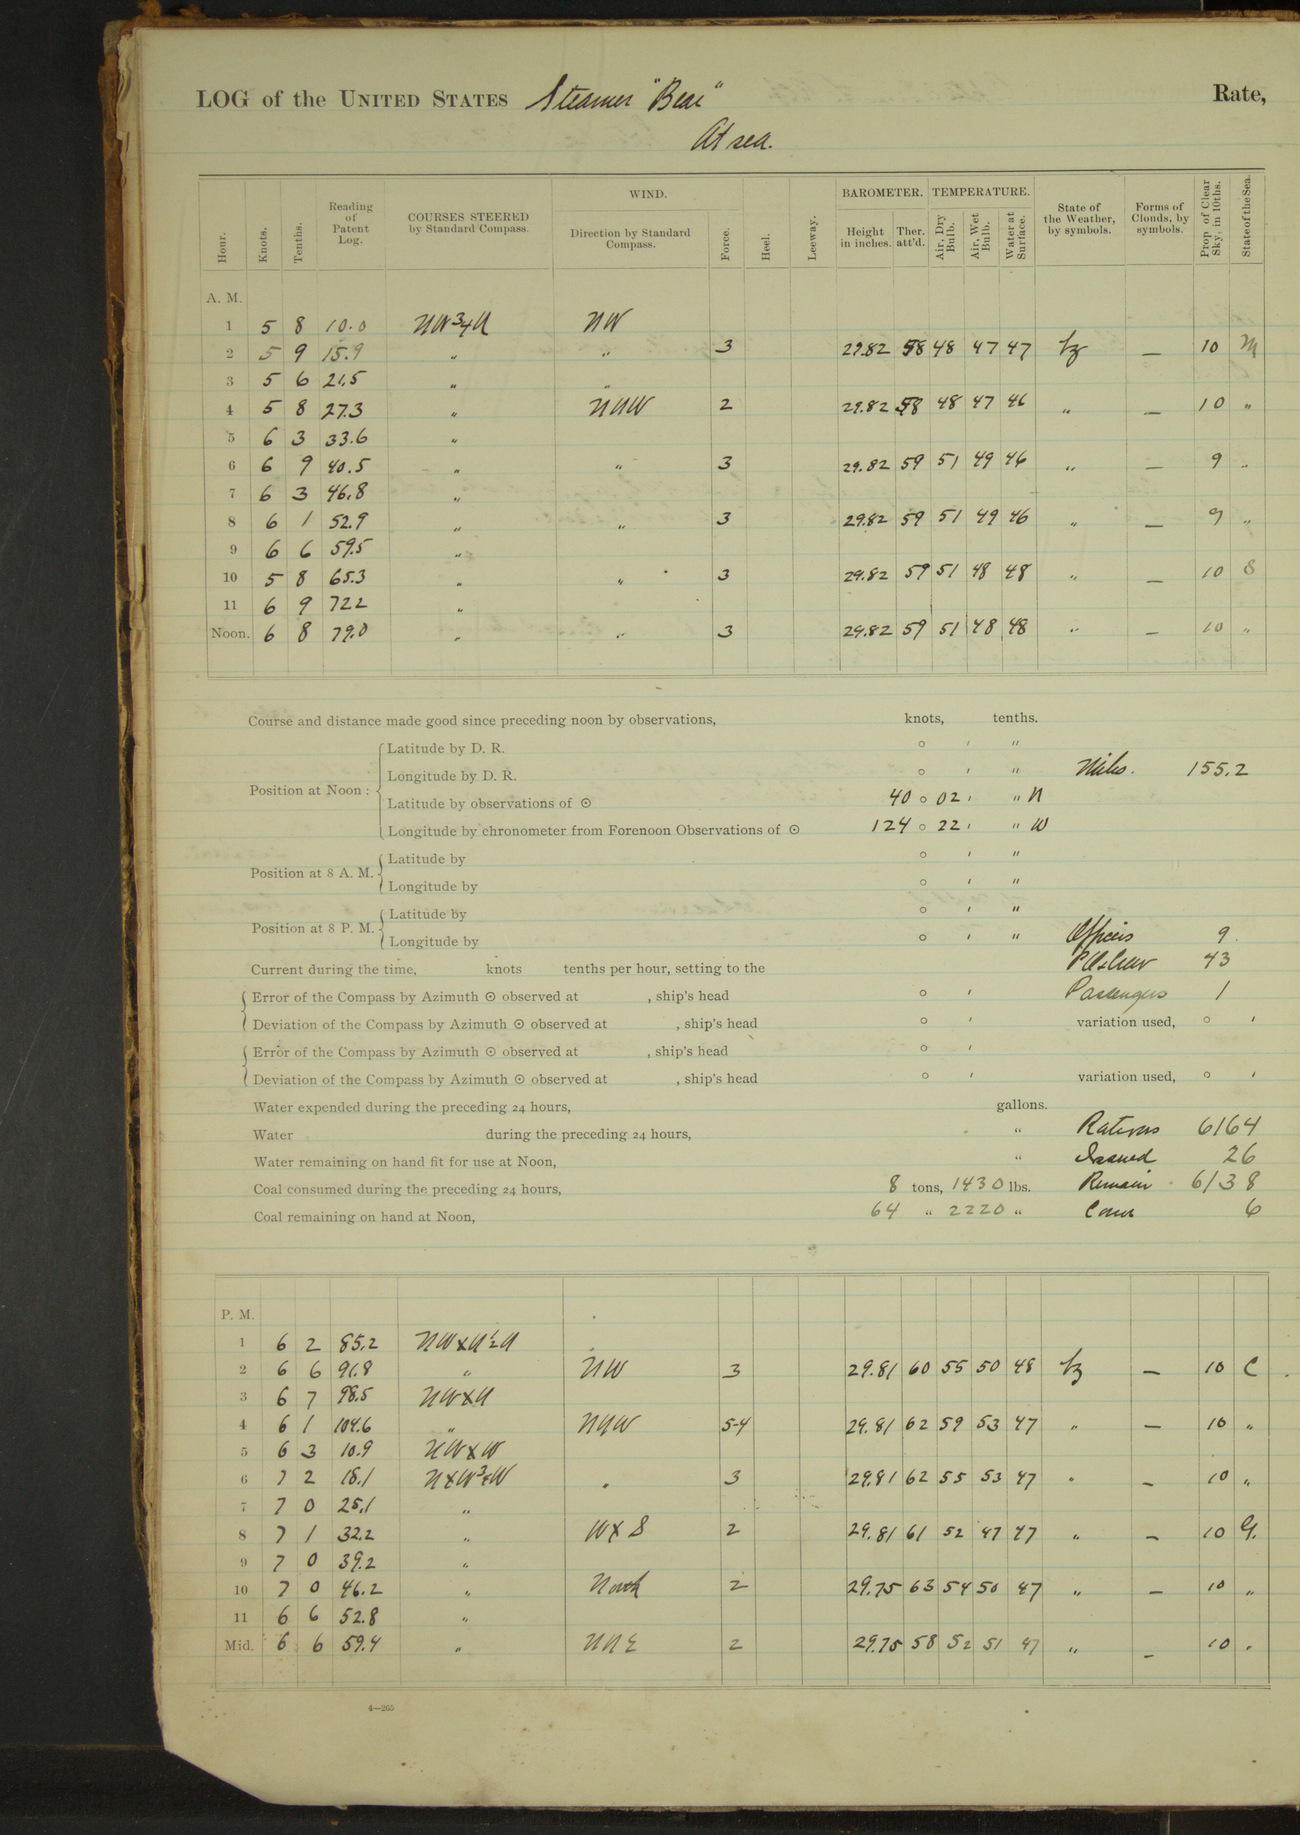 LOG of the UNITED STATES Steamer "Bear" Rate,
At sea.
Hour. Knots. Tenths. Reading of Patent Log. COURSES STEERED by Standard Compass. WIND. Direction by Standard Compass. Force. Heel. Leeway. BAROMETER. Height in inches. Ther. att'd. TEMPERATURE. Air, Dry Bulb. Air, Wet Bulb. Water at Surface. State of the Weather, by symbols. Forms of Clouds, by symbols. Prop. of Clear Sky, in 10ths. State of the Sea.
A. M.
1 5 8 10.0 NW 3/4 N NW
2 5 9 15.9 " " 3 29.82 58 48 47 47 bz — 10 M
3 5 6 21.5 " "
4 5 8 27.3 " NNW 2 29.82 58 48 47 46 " — 10 "
5 6 3 33.6 "
6 6 9 40.5 " " 3 29.82 59 51 49 46 " — 9 "
7 6 3 46.8 "
8 6 1 52.9 " " 3 29.82 59 51 49 46 " — 9 "
9 6 6 59.5 "
10 5 8 65.3 " " 3 29.82 59 51 48 48 " — 10 S
11 6 9 72.2 "
Noon. 6 8 79.0 " " 3 29.82 59 51 48 48 " — 10 "
Course and distance made good since preceding noon by observations, knots, tenths.
Position at Noon:
Latitude by D. R. ° ′ ″
Longitude by D. R. ° ′ ″ Miles. 155.2
Latitude by observations of ☉ 40 ° 02 ′ ″ N
Longitude by chronometer from Forenoon Observations of ☉ 124 ° 22 ′ ″ W
Position at 8 A. M.
Latitude by ° ′ ″
Longitude by ° ′ ″
Position at 8 P. M.
Latitude by ° ′ ″
Longitude by ° ′ ″ Officers 9
Current during the time, knots tenths per hour, setting to the Crew 43
Error of the Compass by Azimuth ☉ observed at , ship's head ° ′ Passengers 1
Deviation of the Compass by Azimuth ☉ observed at , ship's head ° ′ variation used, ° ′
Error of the Compass by Azimuth ☉ observed at , ship's head ° ′
Deviation of the Compass by Azimuth ☉ observed at , ship's head ° ′ variation used, ° ′
Water expended during the preceding 24 hours, gallons.
Water during the preceding 24 hours, " Rations 6164
Water remaining on hand fit for use at Noon, " Issued 26
Coal consumed during the preceding 24 hours, 8 tons, 1430 lbs. Remain 6138
Coal remaining on hand at Noon, 64 " 2220 " 6
P. M.
1 6 2 85.2 NWxN 1/2 N
2 6 6 91.8 " NW 3 29.81 60 55 50 48 bz — 10 C
3 6 7 98.5 NWxN
4 6 1 104.6 " NNW 5-4 29.81 62 59 53 47 " — 10 "
5 6 3 10.9 NWxW
6 7 2 18.1 NxW 3/4 W " 3 29.81 62 55 53 47 " — 10 "
7 7 0 25.1 "
8 7 1 32.2 " WxS 2 29.81 61 52 47 47 " — 10 G.
9 7 0 39.2 "
10 7 0 46.2 " North 2 29.75 63 54 50 47 " — 10 "
11 6 6 52.8 "
Mid. 6 6 59.4 " NNE 2 29.75 58 52 51 47 " — 10 "
4—265